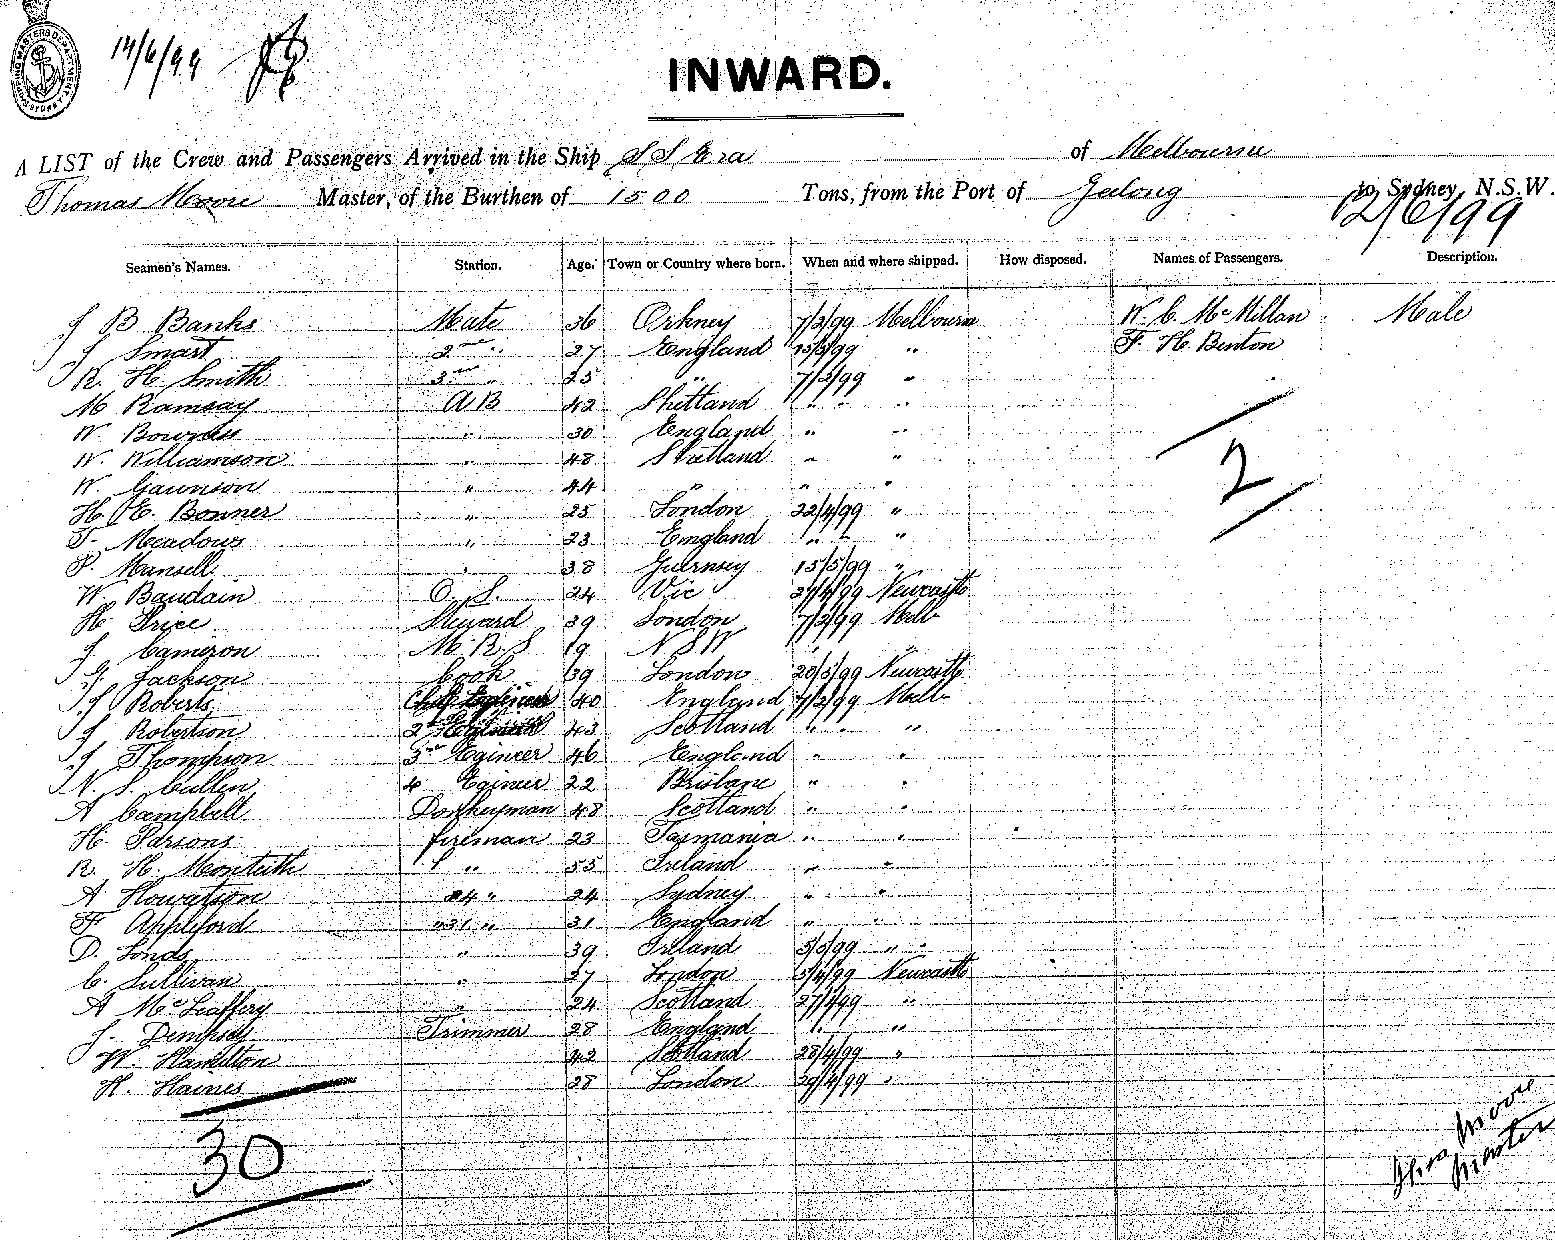 SHIPPING MASTERS DEPARTMENT SYDNEY
14/6/99
INWARD.
A LIST of the Crew and Passengers Arrived in the Ship S S Era of Melbourne
Thomas Moore Master, of the Burthen of 1500 Tons, from the Port of Geelong to Sydney N.S.W.
12/6/99
Seamen's Names. Station. Age. Town or Country where born. When and where shipped. How disposed. Names of Passengers. Description.
J B Banks Mate 36 Orkney 7/2/99 Melbourne W. C. McMillan Male
J Smart 2nd " 27 England 15/5/99 " F. H. Benton
R. H. Smith 3rd " 25 " 7/2/99 "
M Ramsay A B 42 Shetland " " "
W. Bowness " 30 England " "
W. Williamson " 48 Shetland " "
W. Gawnson " 44 " " "
H. E. Bonner " 25 London 22/4/99 "
T. Meadows " 23 England " " "
P. Mansell " 38 Guernsey 15/5/99 "
W. Baudain O. S. 24 Vic 27/4/99 Newcastle
H. Price Steward 39 London 7/2/99 Melb
J Cameron M. R. S 19 N S W
G. Jackson Cook 39 London 20/5/99 Newcastle
J Roberts Chief Engineer 40 England 7/2/99 Melb
J Robertson 2nd Engineer 43 Scotland " " "
J Thompson 3rd Egineer 46 England " "
N. S. Cullen 4 Egineer 22 Brisbane " "
A Campbell Donkeyman 48 Scotland " "
H Parsons fireman 23 Tasmania " "
R. H. Monteith " 55 Ireland " "
A Howatson 24 " 24 Sydney " "
F Appleford " 31 " 31 England " "
D. Lonas " 39 Ireland 5/5/99 " "
C. Sullivan " 27 London 5/4/99 Newcastle
A McLeaffery " 24 Scotland 27/4/99 "
J. Dempsey Trimmer 28 England " "
W. Hamilton 42 Scotland 28/4/99 "
H. Haines 28 London 29/4/99 "
2
30
Thos Moore
Master